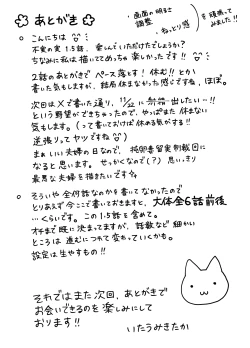 ✿ あとがき ✿
・画面の明るさ調整
・ねっとり感
を頑張ってみました!
○ こんにちは
不実の実1.5話、楽しんでいただけたでしょうか?
ちなみに私は描いててめっちゃ楽しかったです!!
2話のあとがきで ペース落とす! 休む!! とか
書いた気もしますが、結局休まなかった感じですね、ほぼ。
次回はXで書いた通り、11/22に新話出したい…!!
という野望ができちゃったので、やっぱまた休まない
気もします。(って書いておけば休める気がする!!
逆張りってヤツですね)
まぁいい夫婦の日なので、托卵者冒実制裁回に
なると思います。せっかくなので(?)思いっきり
最悪な夫婦を描きたいですね
○ そういや全何話なのかを書いてなかったので
とりあえず今ここで書いておきますと、大体全6話前後
…くらいです。この1.5話を含めて。
オチまで既に決まってますが、話数など細かい
ところは進むにつれて変わっていくかも。
設定は生やすもの!!
それではまた次回、あとがきで
お会いできるのを楽しみにして
おります!!
いたうみきたか